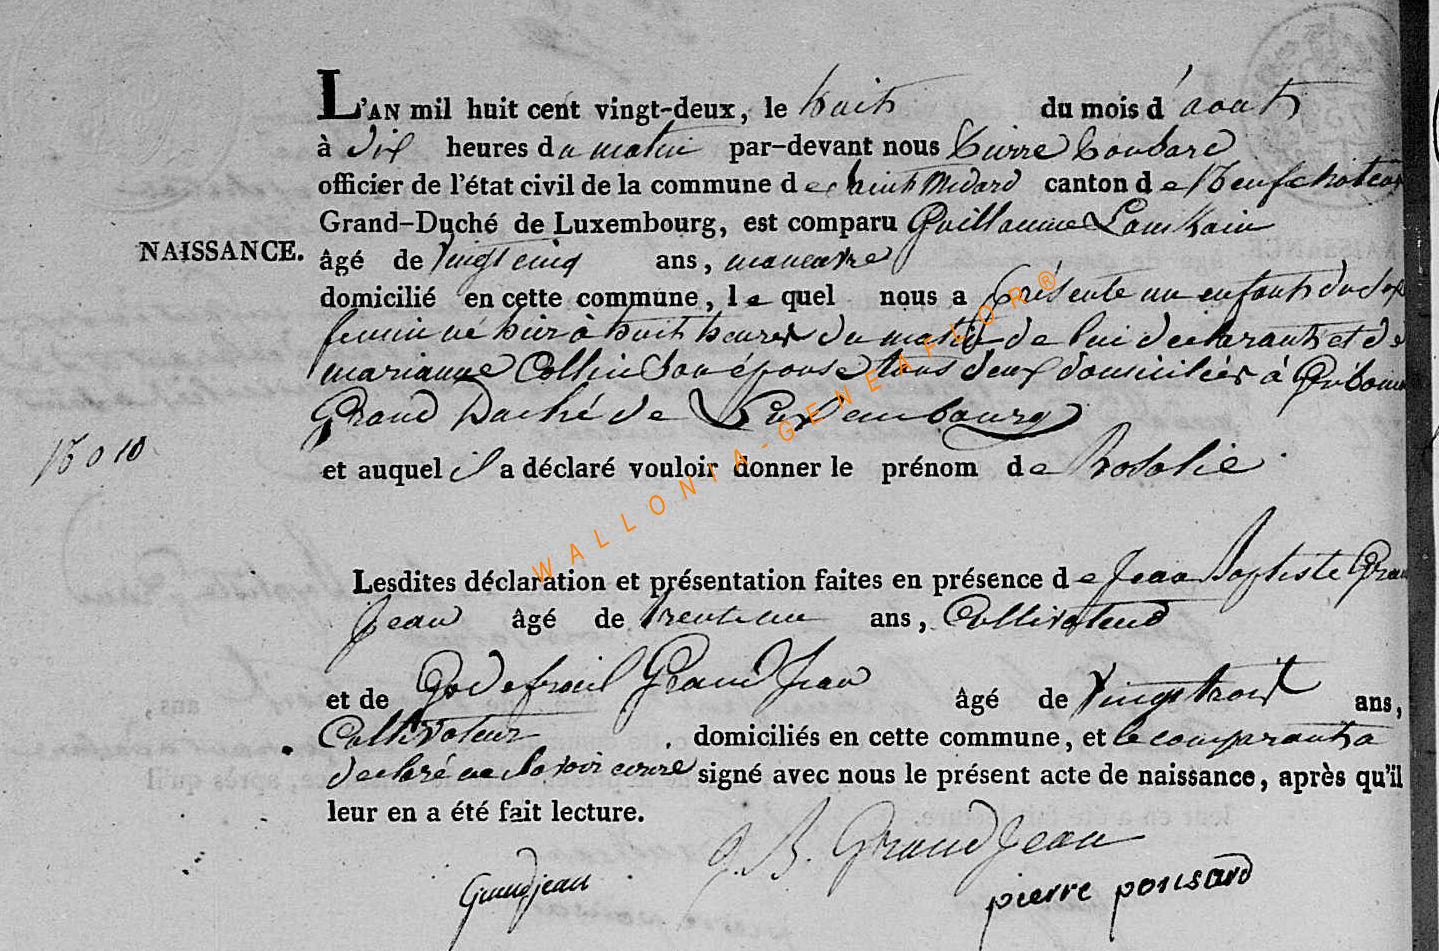 L'AN mil huit cent vingt-deux, le huit du mois d'aout
à dix heures du matin par-devant nous Pierre Ponsard
officier de l'état civil de la commune de Saint Médard canton de Neufchateau
Grand-Duché de Luxembourg, est comparu Guillaume Lamkain
NAISSANCE.
âgé de vingt cinq ans, manœuvre
domicilié en cette commune, lequel nous a présenté un enfant du sexe
feminin né hier à huit heures du matin de lui declarant et de
marianne Collin son épouse tous deux domiciliés à
Grand Duché de Luxembourg
et auquel il a déclaré vouloir donner le prénom de Rosalie
Lesdites déclaration et présentation faites en présence de Jean Baptiste Grand
Jean âgé de trente un ans, Cultivateur
et de Godefroid Grand Jean âgé de vingt trois ans,
Cultivateur domiciliés en cette commune, et le comparant a
declaré ne savoir ecrire signé avec nous le présent acte de naissance, après qu'il
leur en a été fait lecture.
J. B. Grand Jean
Grandjean
pierre ponsard
WALLONIA-GENEAFLOR®